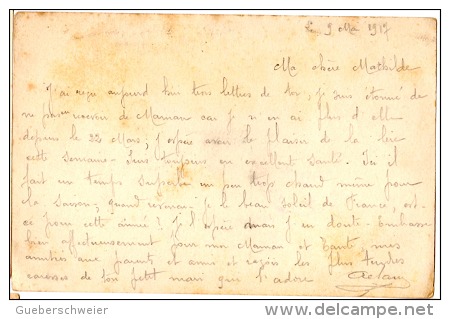 Le 9 Mai 1917
Ma chère Mathilde
J'ai reçu aujourd'hui trois lettres de toi, je suis étonné de
ne pas recevoir de Maman car je n'en ai plus d'elle
depuis le 22 Mars, j'espère avoir le plaisir de la lire
cette semaine. Suis toujours en excellent santé. Ici il
fait un temps superbe un peu trop chaud même pour
la saison, quand reverrai-je le beau soleil de France, est-
ce pour cette année? Je l'espère mais j'en doute. Embrasse
bien affectueusement pour moi Maman et Tante, mes
amitiés aux parents et amis et reçois les plus tendres
caresses de ton petit mari qui t'adore
Gueberschweier
delcampe.net